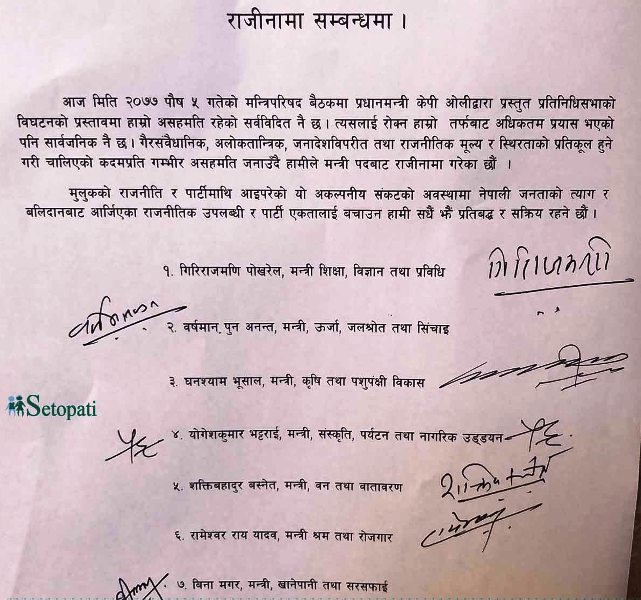 राजीनामा सम्बन्धमा ।
आज मिति २०७७ पौष ५ गतेको मन्त्रिपरिषद बैठकमा प्रधानमन्त्री केपी ओलीद्वारा प्रस्तुत प्रतिनिधिसभाको
विघटनको प्रस्तावमा हाम्रो असहमति रहेको सर्वविदित नै छ । त्यसलाई रोक्न हाम्रो तर्फबाट अधिकतम प्रयास भएको
पनि सार्वजनिक नै छ । गैरसवैधानिक, अलोकतान्त्रिक, जनादेशविपरीत तथा राजनीतिक मूल्य र स्थिरताको प्रतिकूल हुने
गरी चालिएको कदमप्रति गम्भीर असहमति जनाउँदै हामीले मन्त्री पदबाट राजीनामा गरेका छौं ।
मुलुकको राजनीति र पार्टीमाथि आइपरेको यो अकल्पनीय संकटको अवस्थामा नेपाली जनताको त्याग र
बलिदानबाट आर्जिएका राजनीतिक उपलब्धी र पार्टी एकतालाई बचाउन हामी सधैं झैं प्रतिबद्ध र सक्रिय रहने छौं ।
१. गिरिराजमणि पोखरेल, मन्त्री शिक्षा, विज्ञान तथा प्रविधि
२. वर्षमान पुन अनन्त, मन्त्री, ऊर्जा, जलश्रोत तथा सिंचाइ
३. घनश्याम भूसाल, मन्त्री, कृषि तथा पशुपंक्षी विकास
Setopati
४. योगेशकुमार भट्टराई, मन्त्री, संस्कृति, पर्यटन तथा नागरिक उड्डयन
५. शक्तिबहादुर बस्नेत, मन्त्री, वन तथा वातावरण
६. रामेश्वर राय यादव, मन्त्री श्रम तथा रोजगार
७. बिना मगर, मन्त्री, खानेपानी तथा सरसफाई